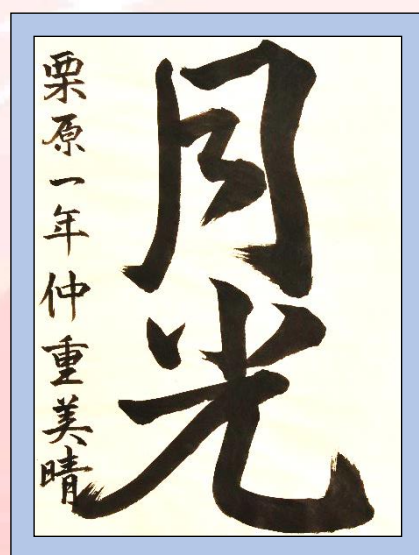 月光
栗原一年仲重美晴